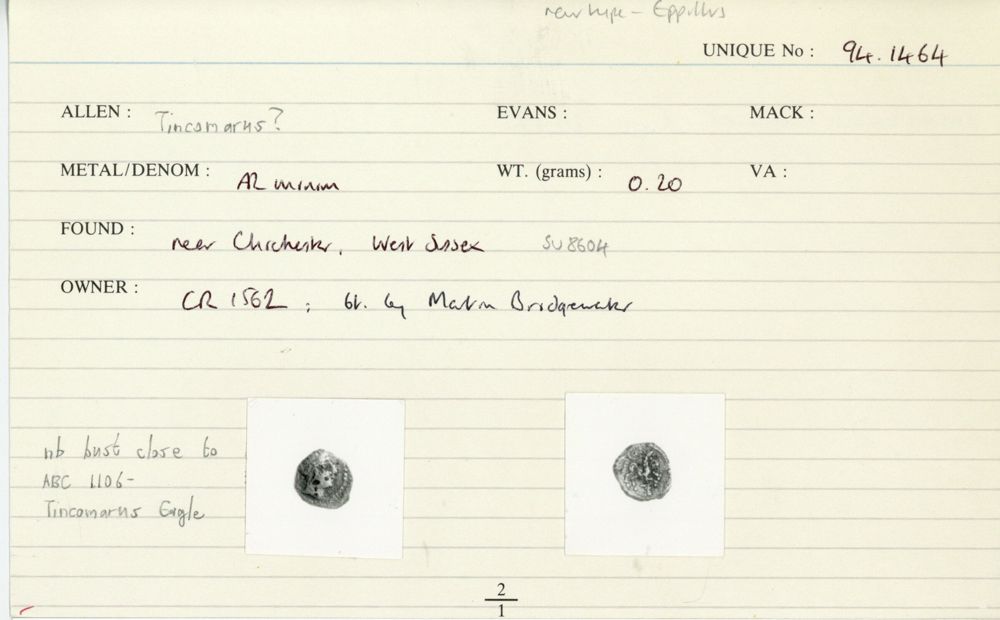 new type - Eppillus
UNIQUE No : 94.1464
ALLEN : Tincomarus? EVANS : MACK :
METAL/DENOM : AR minim WT. (grams) : 0.20 VA :
FOUND : near Chichester, West Sussex SU8604
OWNER : CR 1562 ; bt. by Martin Bridgewater
nb bust close to
ABC 1106-
Tincomarus Eagle
2
1